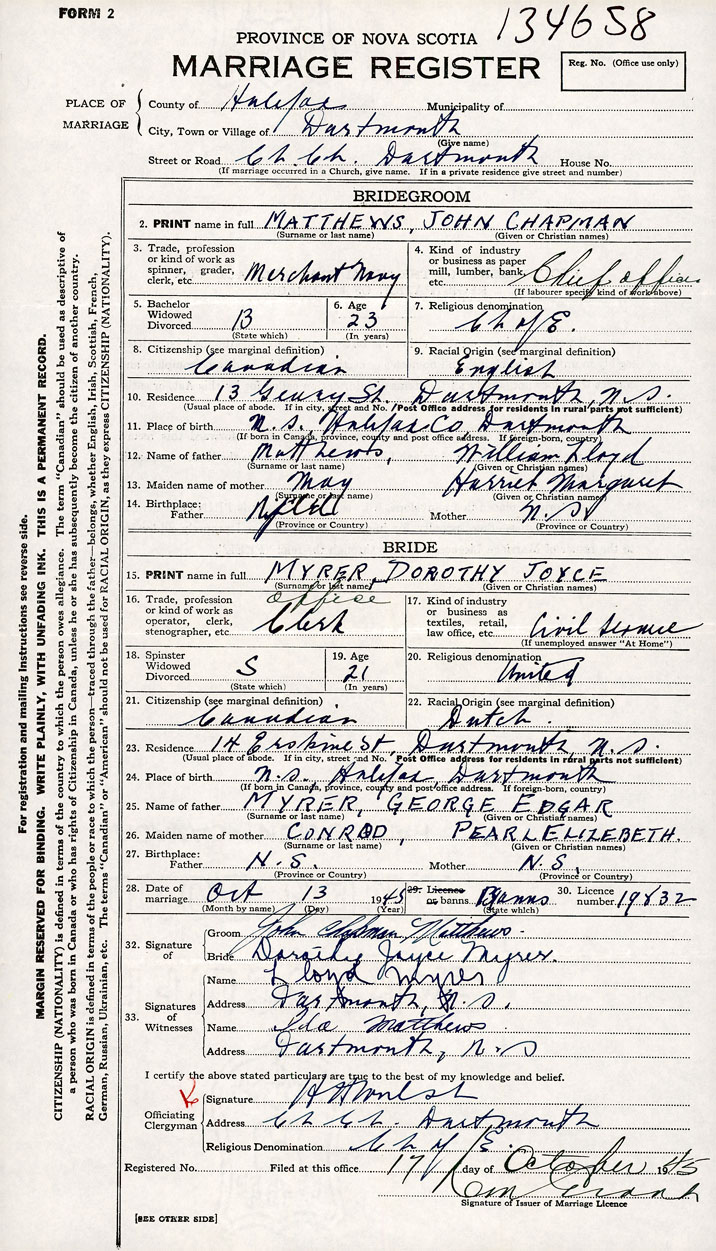 FORM 2
134658
PROVINCE OF NOVA SCOTIA
MARRIAGE REGISTER
Reg. No. (Office use only)
PLACE OF MARRIAGE
County of Halifax Municipality of
City, Town or Village of Dartmouth
(Give name)
Street or Road Ch. Ch. Dartmouth House No.
(If marriage occurred in a Church, give name. If in a private residence give street and number)
BRIDEGROOM
2. PRINT name in full MATTHEWS, JOHN CHAPMAN
(Surname or last name) (Given or Christian names)
3. Trade, profession or kind of work as spinner, grader, clerk, etc. Merchant Navy
4. Kind of industry or business as paper mill, lumber, bank, etc. Chief officer
(If labourer specify kind of work above)
5. Bachelor Widowed Divorced B
(State which)
6. Age 23
(In years)
7. Religious denomination Ch of E.
8. Citizenship (see marginal definition) Canadian
9. Racial Origin (see marginal definition) English
10. Residence 13 Geary St. Dartmouth, N.S.
(Usual place of abode. If in city, street and No. Post Office address for residents in rural parts not sufficient)
11. Place of birth N.S. Halifax Co, Dartmouth
(If born in Canada, province, county and post office address. If foreign-born, country)
12. Name of father Matthews, William Lloyd
(Surname or last name) (Given or Christian names)
13. Maiden name of mother May Harriet Margaret
(Surname or last name) (Given or Christian names)
14. Birthplace: Father Nfld Mother N.S.
(Province or Country) (Province or Country)
BRIDE
15. PRINT name in full MYRER, DOROTHY JOYCE
(Surname or last name) (Given or Christian names)
16. Trade, profession or kind of work as operator, clerk, stenographer, etc. office Clerk
17. Kind of industry or business as textiles, retail, law office, etc. Civil Service
(If unemployed answer "At Home")
18. Spinster Widowed Divorced S
(State which)
19. Age 21
(In years)
20. Religious denomination United
21. Citizenship (see marginal definition) Canadian
22. Racial Origin (see marginal definition) Dutch
23. Residence 14 Erskine St, Dartmouth, N.S.
(Usual place of abode. If in city, street and No. Post Office address for residents in rural parts not sufficient)
24. Place of birth N.S., Halifax, Dartmouth
(If born in Canada, province, county and post office address. If foreign-born, country)
25. Name of father MYRER, GEORGE EDGAR
(Surname or last name) (Given or Christian names)
26. Maiden name of mother CONROD, PEARL ELIZEBETH.
(Surname or last name) (Given or Christian names)
27. Birthplace: Father N.S. Mother N.S.
(Province or Country) (Province or Country)
28. Date of marriage Oct 13 1945
(Month by name) (Day) (Year)
29. Licence or banns Banns
(State which)
30. Licence number 19832
32. Signature of
Groom John Chapman Matthews.
Bride Dorothy Joyce Myrer.
33. Signatures of Witnesses
Name Lloyd Myrer
Address Dartmouth, N.S.
Name Ida Matthews
Address Dartmouth, N.S
I certify the above stated particulars are true to the best of my knowledge and belief.
Officiating Clergyman
Signature
Address Ch. Ch. Dartmouth
Religious Denomination Ch of E.
Registered No. Filed at this office 17 day of October 1945
Signature of Issuer of Marriage Licence
[SEE OTHER SIDE]
For registration and mailing instructions see reverse side.
MARGIN RESERVED FOR BINDING. WRITE PLAINLY, WITH UNFADING INK. THIS IS A PERMANENT RECORD.
CITIZENSHIP (NATIONALITY) is defined in terms of the country to which the person owes allegiance. The term "Canadian" should be used as descriptive of
a person who was born in Canada or who has rights of Citizenship in Canada, unless he or she has subsequently become the citizen of another country.
RACIAL ORIGIN is defined in terms of the people or race to which the person—traced through the father—belongs, whether English, Irish, Scottish, French,
German, Russian, Ukrainian, etc. The terms "Canadian" or "American" should not be used for RACIAL ORIGIN, as they express CITIZENSHIP (NATIONALITY).